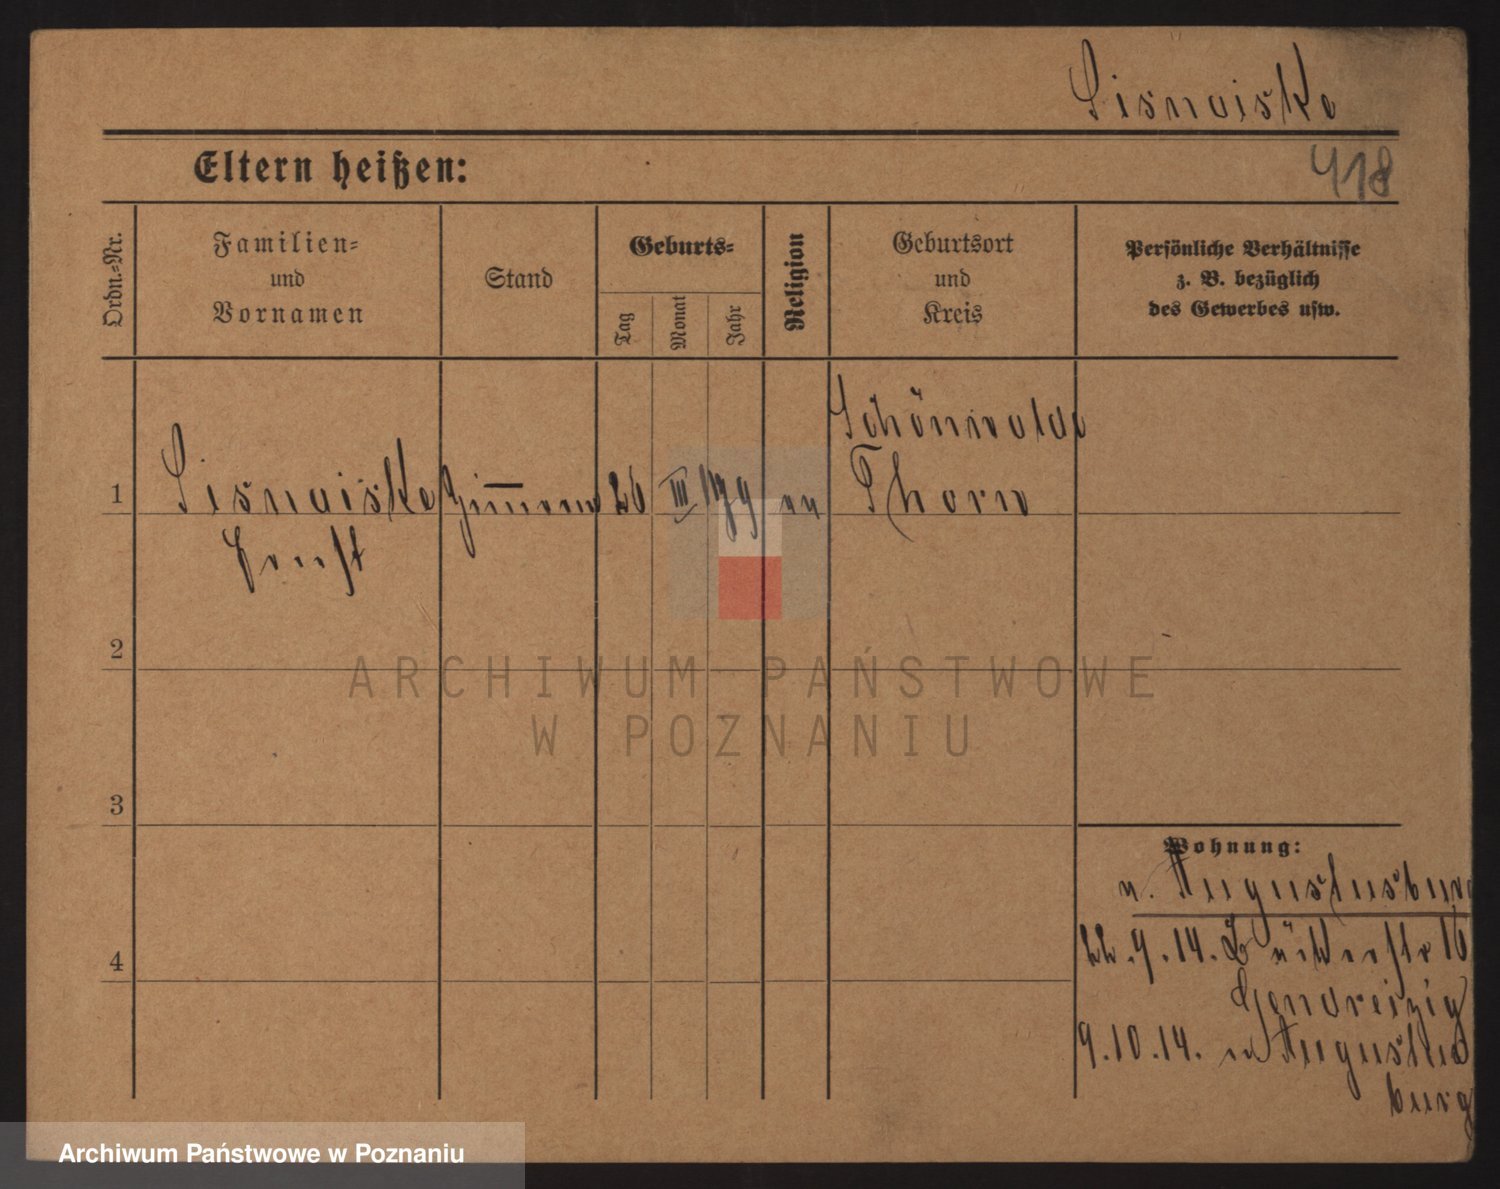 Lisnoiske
418
Eltern heißen:
Ordn.-Nr.
Familien-
und
Vornamen
Stand
Geburts-
Tag
Monat
Jahr
Religion
Geburtsort
und
Kreis
Persönliche Verhältnisse
z. B. bezüglich
des Gewerbes usw.
1
Lisnoiske
Ernst
26
III
ev
Schönwalde
Thorn
2
3
4
Wohnung:
n. Augustusburg
22.9.14.
16
9.10.14. n Augustus
burg
ARCHIWUM PAŃSTWOWE
W POZNANIU
Archiwum Państwowe w Poznaniu